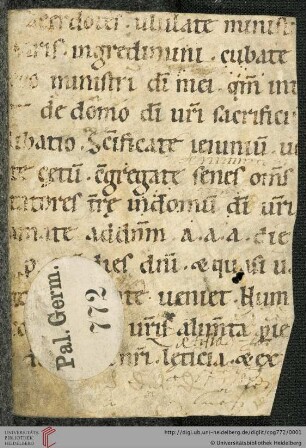 sacerdotes. ululate ministri
aris. ingredimini. cubate
co ministri di mei. qm int
de domo di uri sacrificiu
ibatio. Scificate ieiuniu. u
te cetu. cgregate senes oms
tatores tre in domu di uri
amate addnm a. a. a. die
dies dni. & quasi u
te ueniet. Num
uris alimta pie
ni. leticia & ex
Pal. Germ.
772
UNIVERSITÄTS-
BIBLIOTHEK
HEIDELBERG
http://digi.ub.uni-heidelberg.de/diglit/cpg772/0001
© Universitätsbibliothek Heidelberg